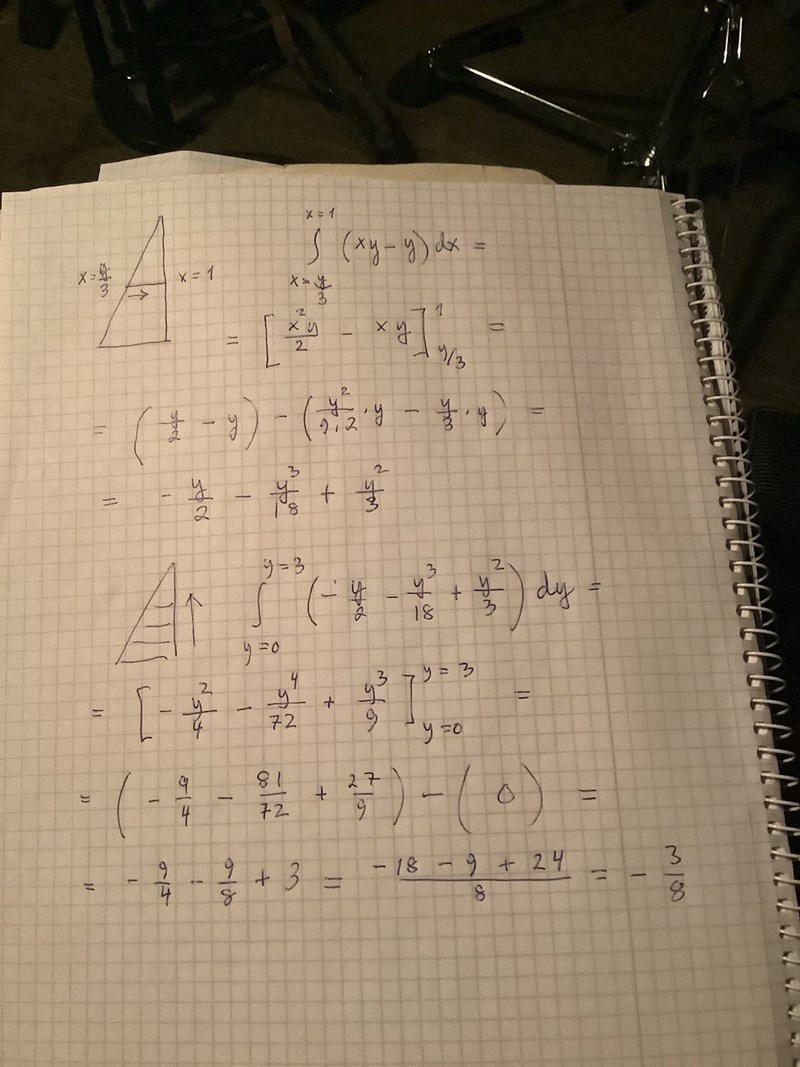 x = y/3 x = 1 ∫_{x = y/3}^{x = 1} (xy − y) dx =
= [x²y/2 − xy]_{y/3}^{1} =
= (y/2 − y) − (y²/9.2 · y − y/3 · y) =
= − y/2 − y³/18 + y²/3
∫_{y = 0}^{y = 3} (− y/2 − y³/18 + y²/3) dy =
= [− y²/4 − y⁴/72 + y³/9]_{y = 0}^{y = 3} =
= (− 9/4 − 81/72 + 27/9) − (0) =
= − 9/4 − 9/8 + 3 = (−18 − 9 + 24)/8 = − 3/8